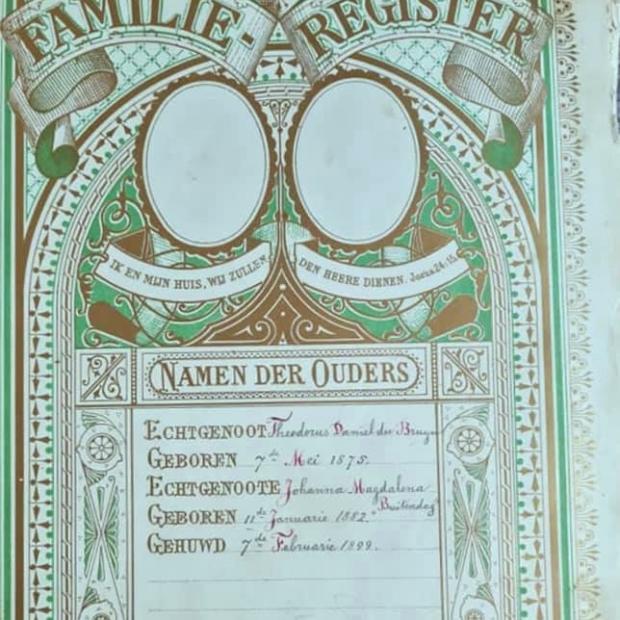 FAMILIE-REGISTER
IK EN MIJN HUIS, WIJ ZULLEN DEN HEERE DIENEN. Josua 24:15.
NAMEN DER OUDERS
ECHTGENOOT Theodorus Daniel du Bruyn
GEBOREN 7de Mei 1875.
ECHTGENOOTE Johanna Magdalena
"Buitendag"
GEBOREN 11de Januarie 1882.
GEHUWD 7de Februarie 1899.